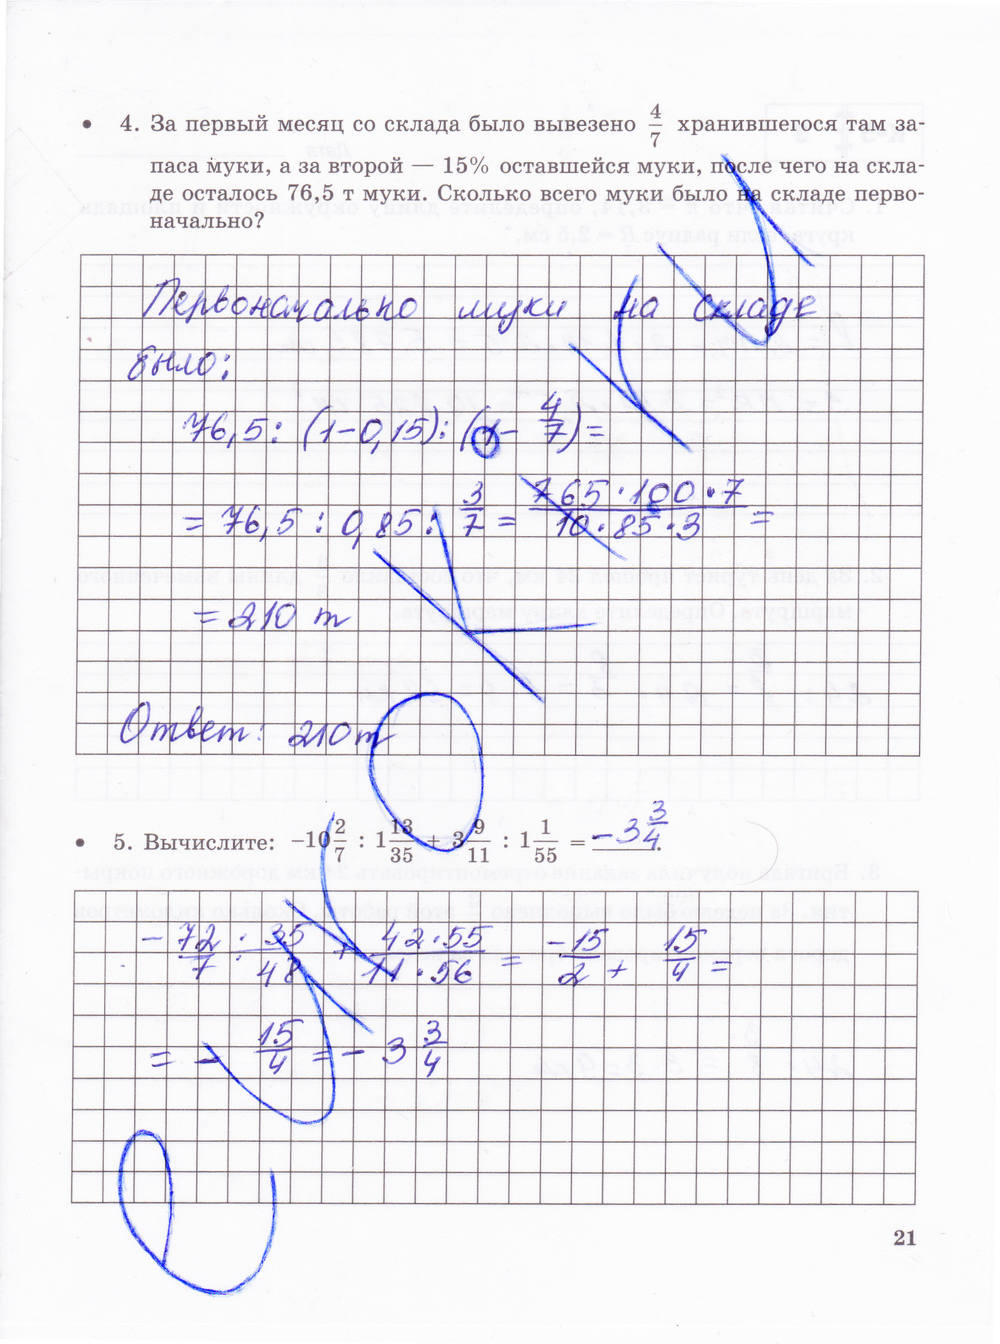 • 4. За первый месяц со склада было вывезено 4/7 хранившегося там за-
паса муки, а за второй — 15% оставшейся муки, после чего на скла-
де осталось 76,5 т муки. Сколько всего муки было на складе перво-
начально?
Первоначально муки на складе
было:
76,5 : (1-0,15) : (1 - 4/7) =
= 76,5 : 0,85 : 3/7 = 765·100·7/10·85·3 =
= 210 т
Ответ: 210 т
• 5. Вычислите: −10 2/7 : 1 13/35 + 3 9/11 : 1 1/55 = -3 3/4.
- 72/7 · 35/48 + 42·55/11·56 = -15/2 + 15/4 =
= - 15/4 = - 3 3/4
21